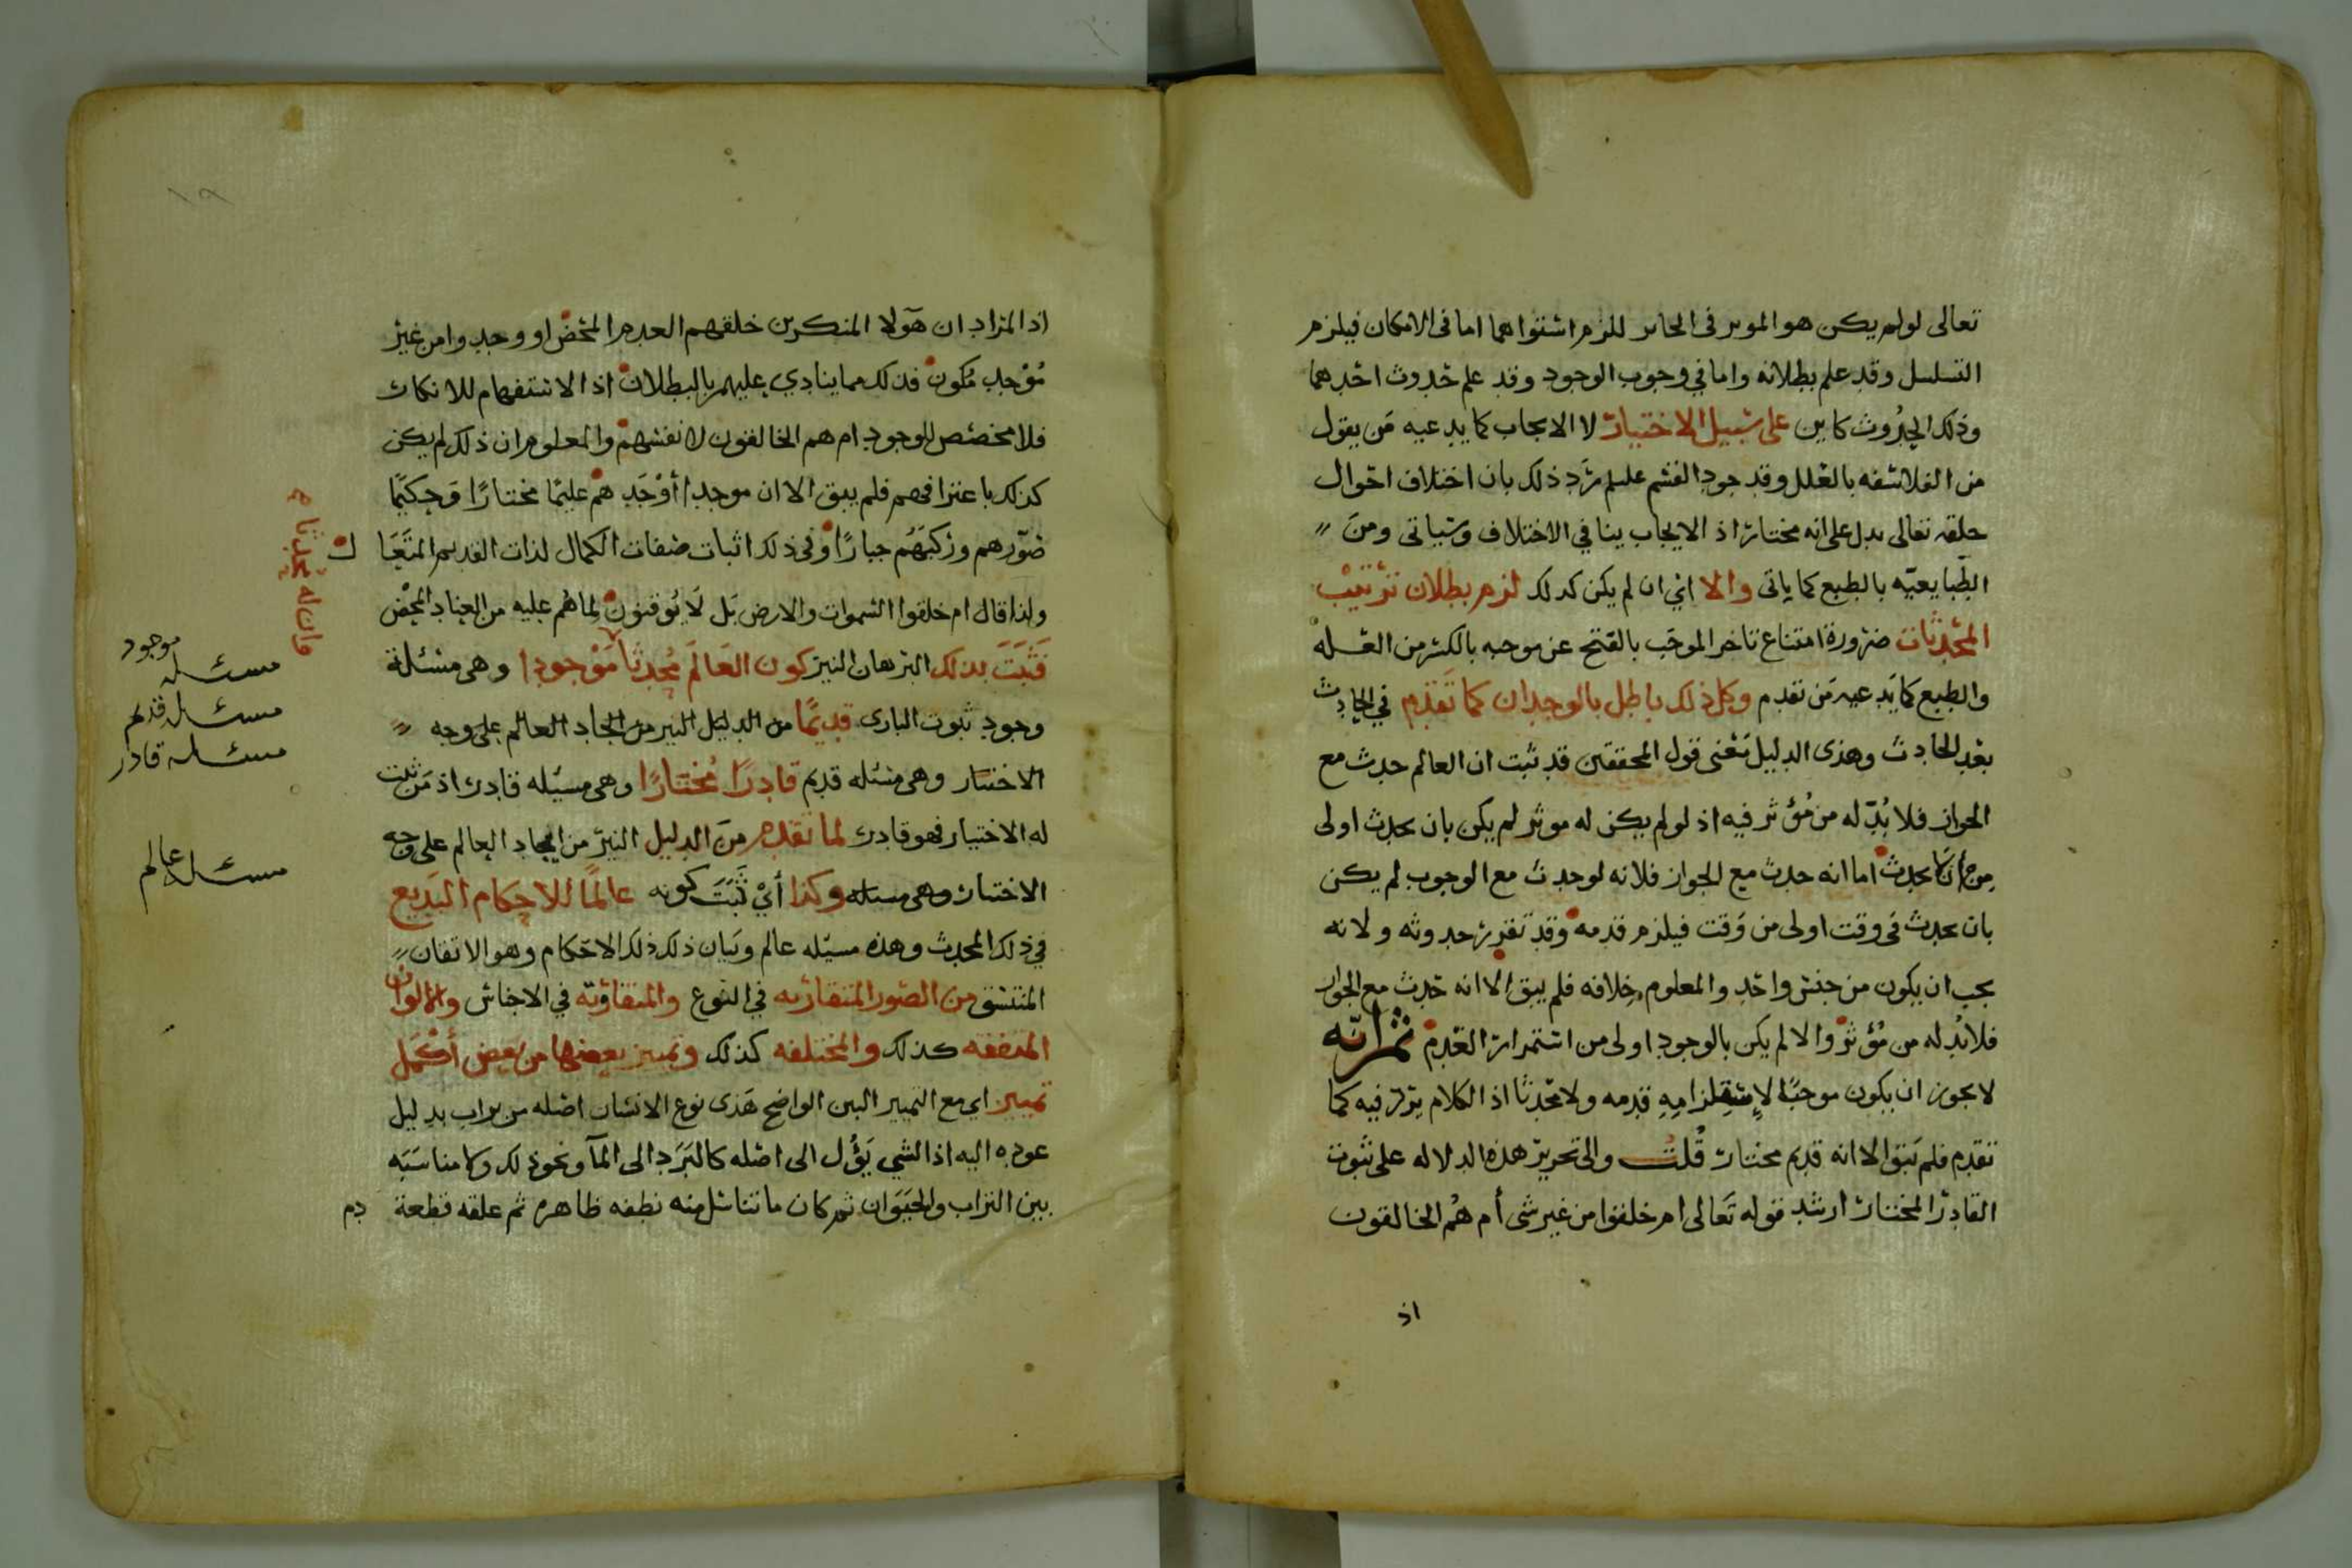 تعالى لو لم يكن هو الموثر في الحاىر للزم استواهما اما في الامكان فيلزم
التسلسل وقد علم بطلانه واما في وجوب الوجود وقد علم حدوث احدهما
وذلك الحدوث كاين على سبيل الاختيار لا الايجاب كما يدعيه من يقول
من الفلاسفه بالعلل وقد جود القسم عليلم رد ذلك بان اختلاف احوال
خلقه تعالى يدل على انه مختار اذ الايجاب ينافي الاختلاف وسياتى ومن
الطبايعيّه بالطبع كما ياتى والا اي ان لم يكن كذلك لزم بطلان ترتيب
المحدثات ضرورة امتناع تاخر الموجَب بالفتح عن موجبه بالكسر من العله
والطبع كما يدعيه من تقدم وكل ذلك باطل بالوجدان كما تقدم في الحادث
بعد الحادث وهذى الدليل معنى قول المحققين قد ثبت ان العالم حدث مع
الجواز فلا بُدّ له من مُؤثر فيه اذ لو لم يكن له موثر لم يكن بان يحدث اولى
من ان لا يحدث اما انه حدث مع الجواز فلانه لو حدث مع الوجوب لم يكن
بان يحدث في وقت اولى من وقت فيلزم قدمه وقد تقرر حدوثه ولانه
يجب ان يكون من جنس واحد والمعلوم خلافه فلم يبق الا انه حدث مع الجواز
فلا بُد له من مُؤثر والا لم يكن بالوجود اولى من استمرار العدم ثم انّه
لا يجوز ان يكون موجبًا لاستلزامِهِ قدمه ولا محدثا اذ الكلام يرد فيه كما
تقدم فلم يبق الا انه قديم مختار قُلتُ والى تحرير هذه الدلاله على ثبوت
القادر المختار ارشد قوله تعالى ام خلقوا من غير شى أم هُم الخالقون
اذ
اذ المراد ان هولا المنكرين خلقهم العدم المحض او وجدوا من غير
مُوْجد مُكون فذلك مما ينادي عليهم بالبطلان اذ الاستفهام للانكار
فلا مخصص للوجود ام هم الخالقون لانفسهم والمعلوم ان ذلك لم يكن
كذلك باعترافهم فلم يبق الا ان موجدا أوْجَدهم عليمًا مختارًا وحكيمًا
صوّرهم وركبَهُم جبارًا وفى ذلك اثبات صفات الكمال لذات القديم المتعَا ل
ولذا قال ام خلقوا السموات والارض بَل لَا يُوقنون لما هُم عليه من العناد المحْض
فَثبَتَ بذلك البرهان النير كون العَالَم مُحدثا مَوْجودا وهى مسئلة
وجود ثبوت البارى قديمًا من الدليل النير من ايجاد العالم على وجه
الاختيار وهى مسئله قديم قادرًا مُختارًا وهى مسئله قادر اذ من ثبت
له الاختيار فهو قادر لما تقدم من الدليل النيّر من ايجاد العالم على وجه
الاختيار وهى مسئله وكذا أيْ ثَبَتَ كونه عالمًا للاحكام البديع
في ذلك المحدث وهذه مسئله عالم وبيان ذلك ذلك الاحكام وهو الاتقان
المتسق من الصور المتقاربه في النوع والمتفاوته في الاجناس والالوان
المتفقه كذلك والمختلفه كذلك وتمييز بعضها من بعض أكْمَل
تمييز اى مع التمييز البين الواضح هَذى نوع الانسان اصله من تراب بدليل
عوده اليه اذ الشي يَؤُل الى اصله كالبَرَد الى المآ ونحو ذلك ولا مناسَبَه
بين التراب والحيَوَان ثم كان ما تناسل منه نطفه ظاهره ثم علقه قطعة دم
فان له محدثا
مسئله موجود
مسئله قديم
مسئله قادر
مسئله عالم
١٩